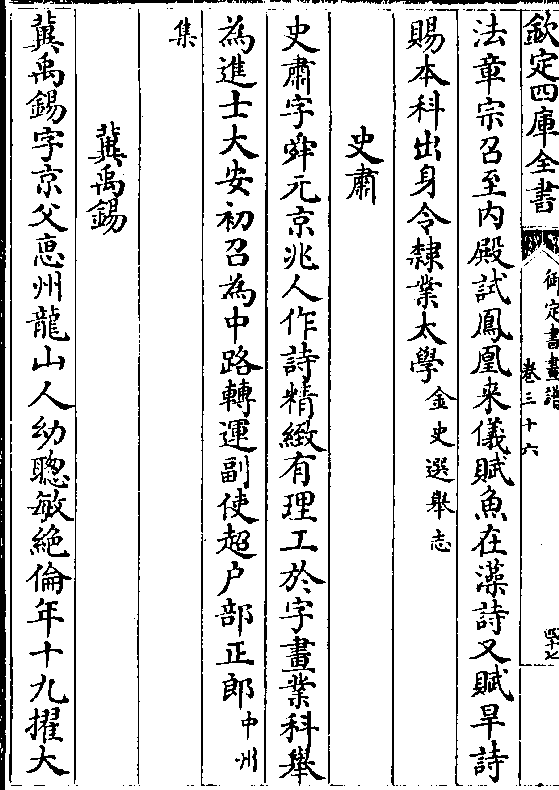 欽定四庫全書
御定書畫譜
卷三十六
四十七
法章宗召至内殿試鳳凰來儀賦魚在藻詩又賦旱詩
賜本科出身令隸業太學金史選舉志
史肅
史肅字舜元京兆人作詩精緻有理工於字畫業科舉
為進士大安初召為中路轉運副使超户部正郎中州
集
冀禹錫
冀禹錫字京父恵州龍山人幼聰敏絶倫年十九擢大